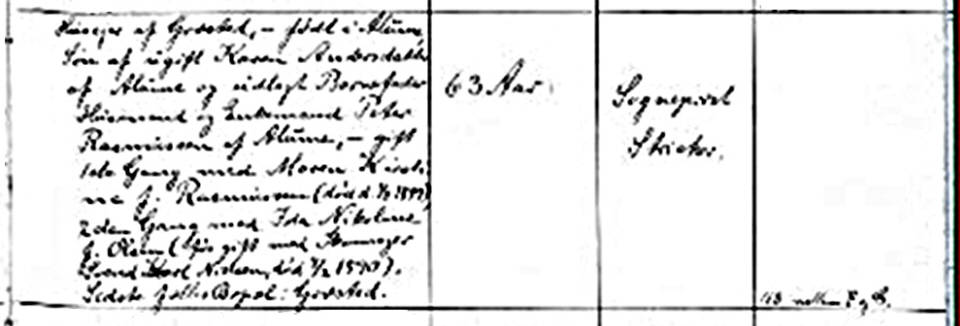 Huseier af Gørsted, – født i Ålum,
Søn af ugift Karen Andersdatter
af Ålum og udlagt Barnefader
Husmand og Enkemand Peter
Rasmussen af Ålum, – gift
1ste Gang med Maren Kirsti-
ne f. Rasmussen (død d.
2den Gang med Ida Nikoline
f. Olsen (før gift med
Svend Karl Nissen, død 1890).
Sidste fælles Bopæl: Gørsted.
63 Aar.
Sognepræst
Stricker.